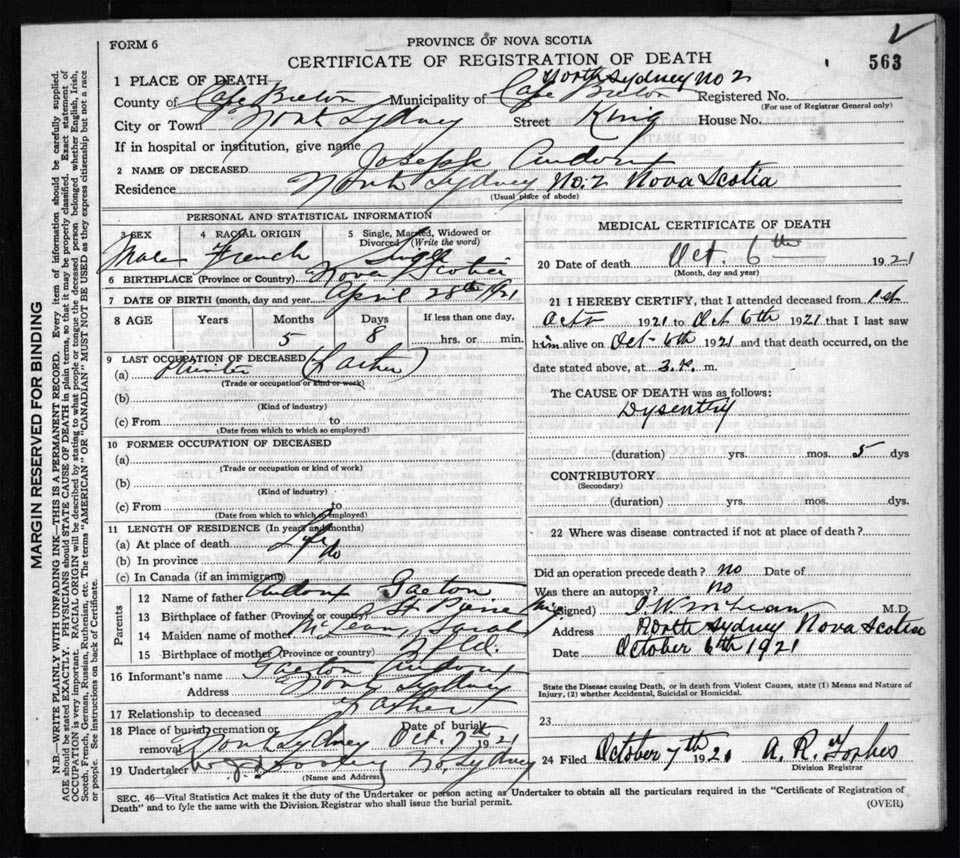 FORM 6
PROVINCE OF NOVA SCOTIA
CERTIFICATE OF REGISTRATION OF DEATH
563
1 PLACE OF DEATH
North Sydney No 2
County of Cape Breton Municipality of Cape Breton Registered No.
(For use of Registrar General only)
City or Town North Sydney Street King House No.
If in hospital or institution, give name
2 NAME OF DECEASED Joseph
Residence North Sydney No. 2 Nova Scotia
(Usual place of abode)
PERSONAL AND STATISTICAL INFORMATION
3 SEX 4 RACIAL ORIGIN 5 Single, Married, Widowed or Divorced (Write the word)
Male French Single
6 BIRTHPLACE (Province or Country) Nova Scotia
7 DATE OF BIRTH (month, day and year) April 28th 1921
8 AGE Years Months Days If less than one day,
5 8 hrs. or min.
9 LAST OCCUPATION OF DECEASED (Father)
(a)
(Trade or occupation or kind or work)
(b)
(Kind of industry)
(c) From to
(Date from which to which so employed)
10 FORMER OCCUPATION OF DECEASED
(a)
(Trade or occupation or kind of work)
(b)
(Kind of industry)
(c) From to
(Date from which to which so employed)
11 LENGTH OF RESIDENCE (In years and months)
(a) At place of death Life
(b) In province no
(c) In Canada (if an immigrant)
Parents
12 Name of father Gaeton
13 Birthplace of father (Province or country) St Pierre Miq
14 Maiden name of mother McLean, Sarah
15 Birthplace of mother (Province or country) Nfld.
16 Informant's name Gaeton
Address North Sydney
17 Relationship to deceased Father
18 Place of burial, cremation or removal North Sydney Date of burial Oct. 7th 1921
19 Undertaker No. Sydney
(Name and Address)
MEDICAL CERTIFICATE OF DEATH
20 Date of death Oct. 6th 1921
(Month, day and year)
21 I HEREBY CERTIFY, that I attended deceased from 1st
Oct 1921 to Oct 6th 1921 that I last saw
him alive on Oct 6th 1921 and that death occurred, on the
date stated above, at 3. P. m.
The CAUSE OF DEATH was as follows:
Dysentry
(duration) yrs. mos. 5 dys
CONTRIBUTORY
(Secondary)
(duration) yrs. mos. dys.
22 Where was disease contracted if not at place of death?
Did an operation precede death? no Date of
Was there an autopsy? no
(Signed) J W McLean M.D.
Address North Sydney Nova Scotia
Date October 6th 1921
State the Disease causing Death, or in death from Violent Causes, state (1) Means and Nature of
Injury, (2) whether Accidental, Suicidal or Homicidal.
23
24 Filed October 7th 1921 A. R. Forbes
Division Registrar
SEC. 46—Vital Statistics Act makes it the duty of the Undertaker or person acting as Undertaker to obtain all the particulars required in the "Certificate of Registration of
Death" and to fyle the same with the Division Registrar who shall issue the burial permit.
(OVER)
MARGIN RESERVED FOR BINDING
N.B.—WRITE PLAINLY WITH UNFADING INK—THIS IS A PERMANENT RECORD. Every item of information should be carefully supplied.
AGE should be stated EXACTLY. PHYSICIANS should STATE CAUSE OF DEATH in plain terms, so that it may be properly classified. Exact statement of
OCCUPATION is very important. RACIAL ORIGIN will be described by stating to what people or tongue the deceased person belonged whether English, Irish,
Scotch, French, German, Russian, Ruthenian, etc. The terms "AMERICAN" OR "CANADIAN" MUST NOT BE USED as they express citizenship but not a race
or people. See instructions on back of Certificate.